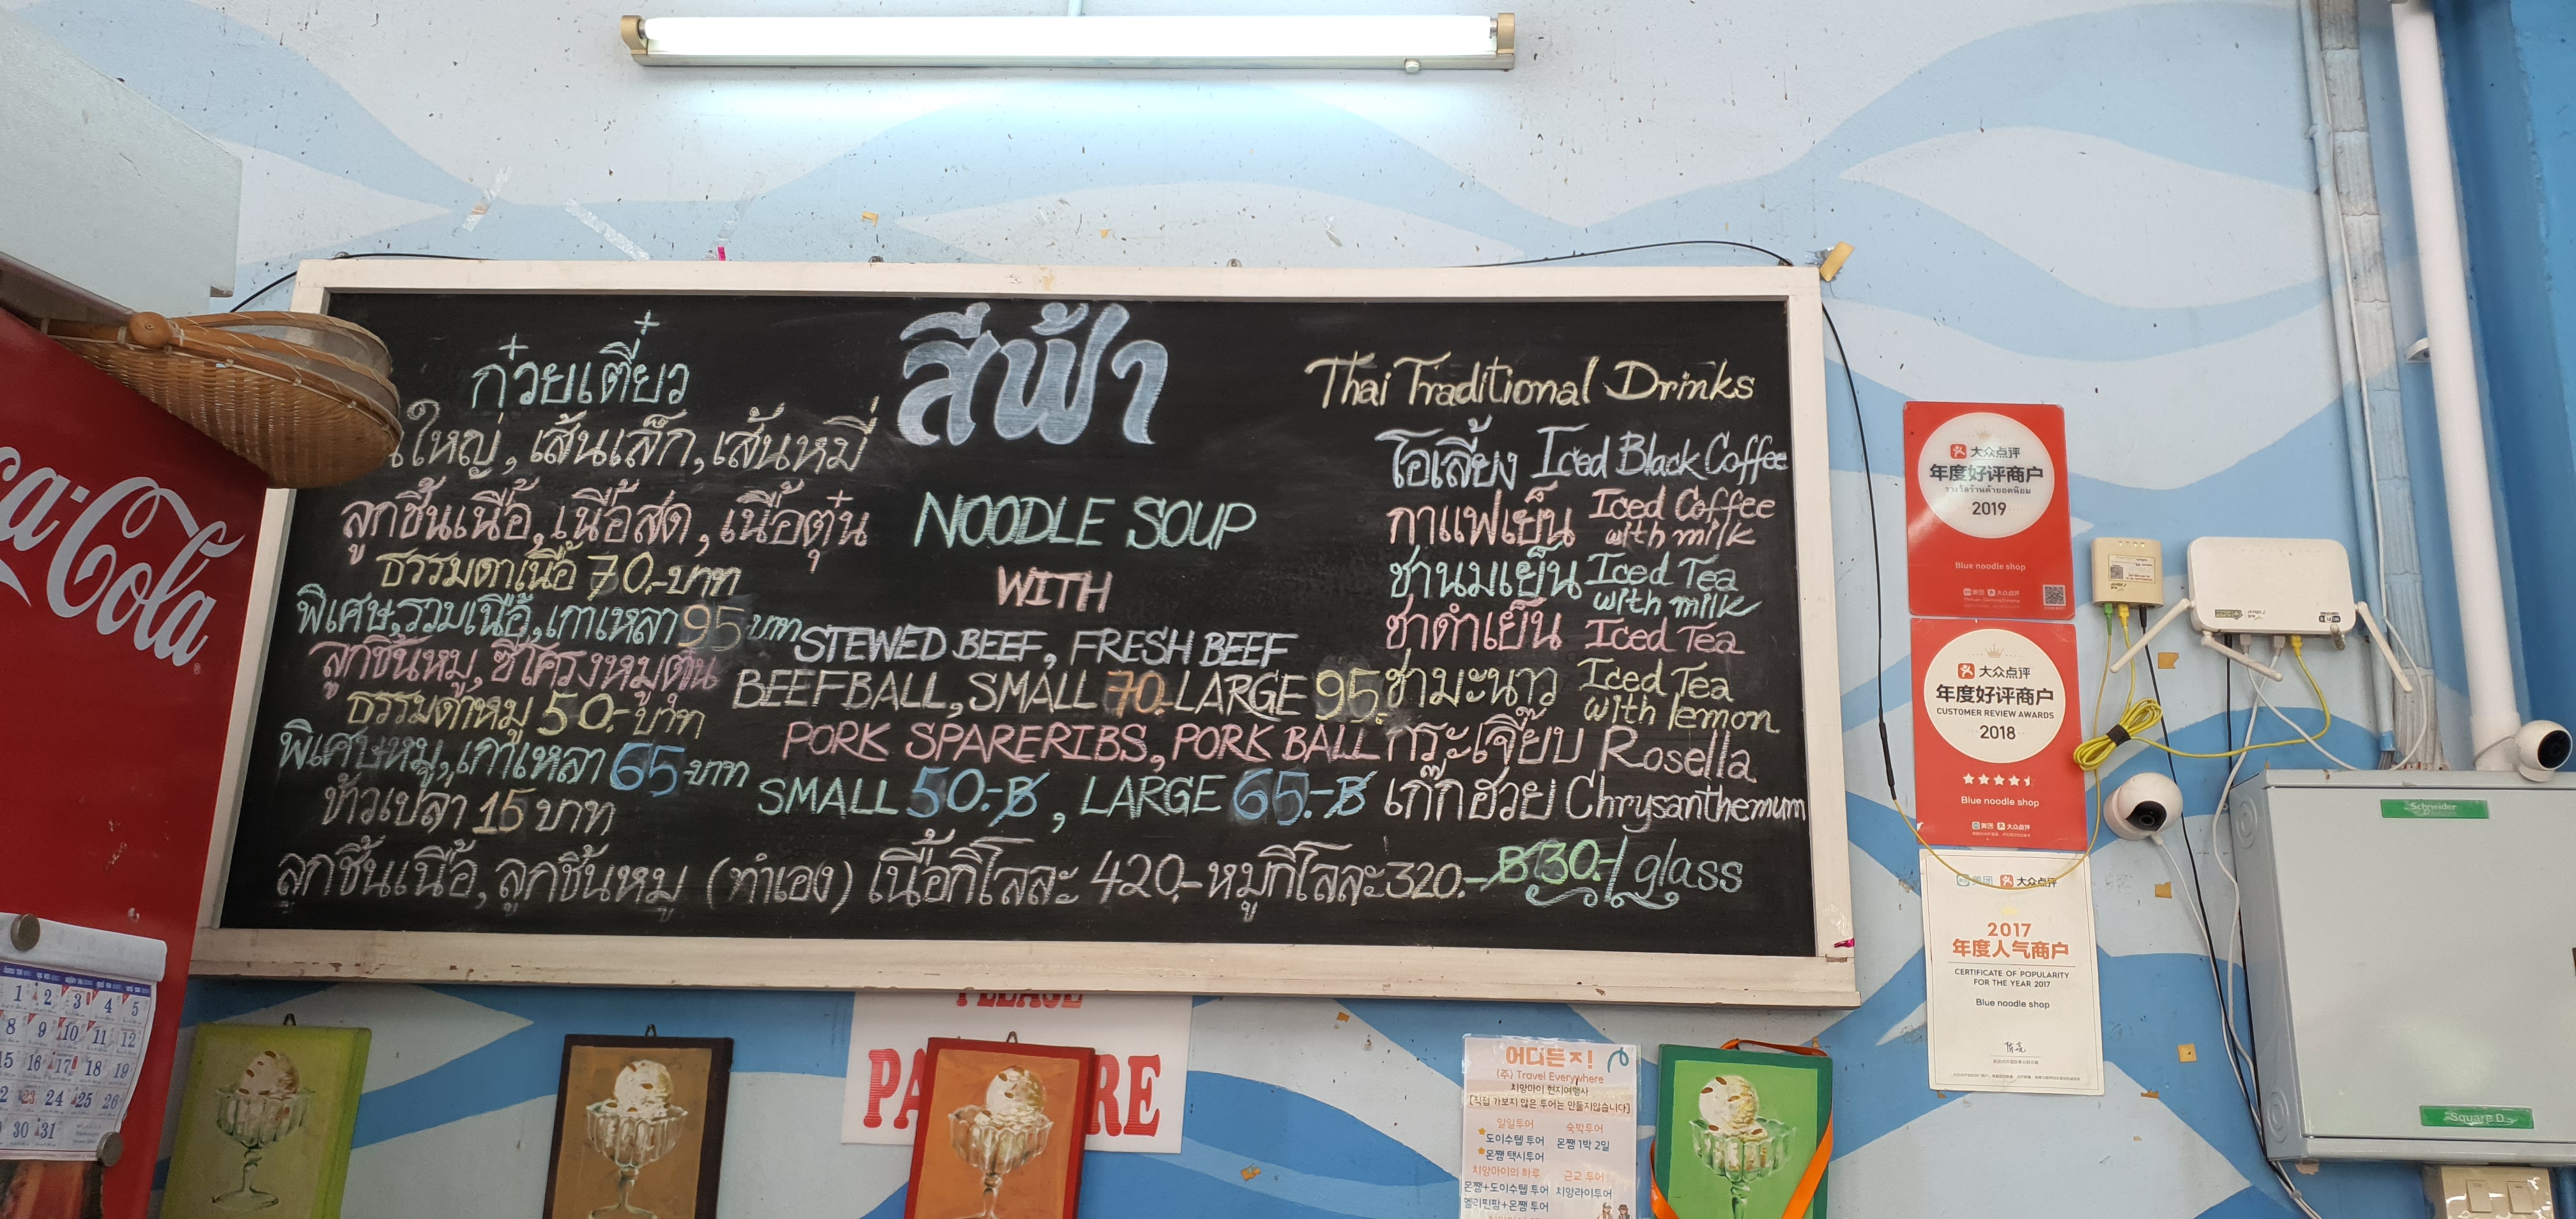 สีฟ้า
ก๋วยเตี๋ยว
ใหญ่, เส้นเล็ก, เส้นหมี่
ลูกชิ้นเนื้อ, เนื้อสด, เนื้อตุ๋น
ธรรมดาเนื้อ 70.-บาท
พิเศษ,รวมเนื้อ,เกาเหลา 95 บาท
ลูกชิ้นหมู, ซี่โครงหมูตุ๋น
ธรรมดาหมู 50.-บาท
พิเศษหมู,เกาเหลา 65 บาท
ข้าวเปล่า 15 บาท
ลูกชิ้นเนื้อ, ลูกชิ้นหมู (ทำเอง) เนื้อกิโลละ 420.-หมูกิโลละ 320.-
NOODLE SOUP
WITH
STEWED BEEF, FRESH BEEF
BEEFBALL, SMALL 70.-LARGE 95.
PORK SPARERIBS, PORK BALL
SMALL 50.-฿, LARGE 65.-฿
Thai Traditional Drinks
โอเลี้ยง Iced Black Coffee
กาแฟเย็น Iced Coffee with milk
ชานมเย็น Iced Tea with milk
ชาดำเย็น Iced Tea
ชามะนาว Iced Tea with lemon
กระเจี๊ยบ Rosella
เก๊กฮวย Chrysanthemum
฿30.-/glass
ca-Cola
大众点评
年度好评商户
รางวัลร้านค้ายอดนิยม
2019
Blue noodle shop
美团 大众点评
大众点评
年度好评商户
CUSTOMER REVIEW AWARDS
2018
Blue noodle shop
美团 大众点评
美团 大众点评
2017
年度人气商户
CERTIFICATE OF POPULARITY
FOR THE YEAR 2017
Blue noodle shop
Schneider
Square D
1 2 3 4 5
8 9 10 11 12
15 16 17 18 19
2 23 24 25 26
30 31
PLEASE
PA RE
어디든지!
(주) Travel Everywhere
치앙마이 현지여행사
[직접 가보지 않은 투어는 만들지않습니다]
일일투어 숙박투어
도이수텝 투어 몬쨈 1박 2일
몬쨈 택시투어
치앙마이의 하루 근교 투어
몬쨈+도이수텝 투어 치앙라이투어
엘리핀팜+몬쨈 투어